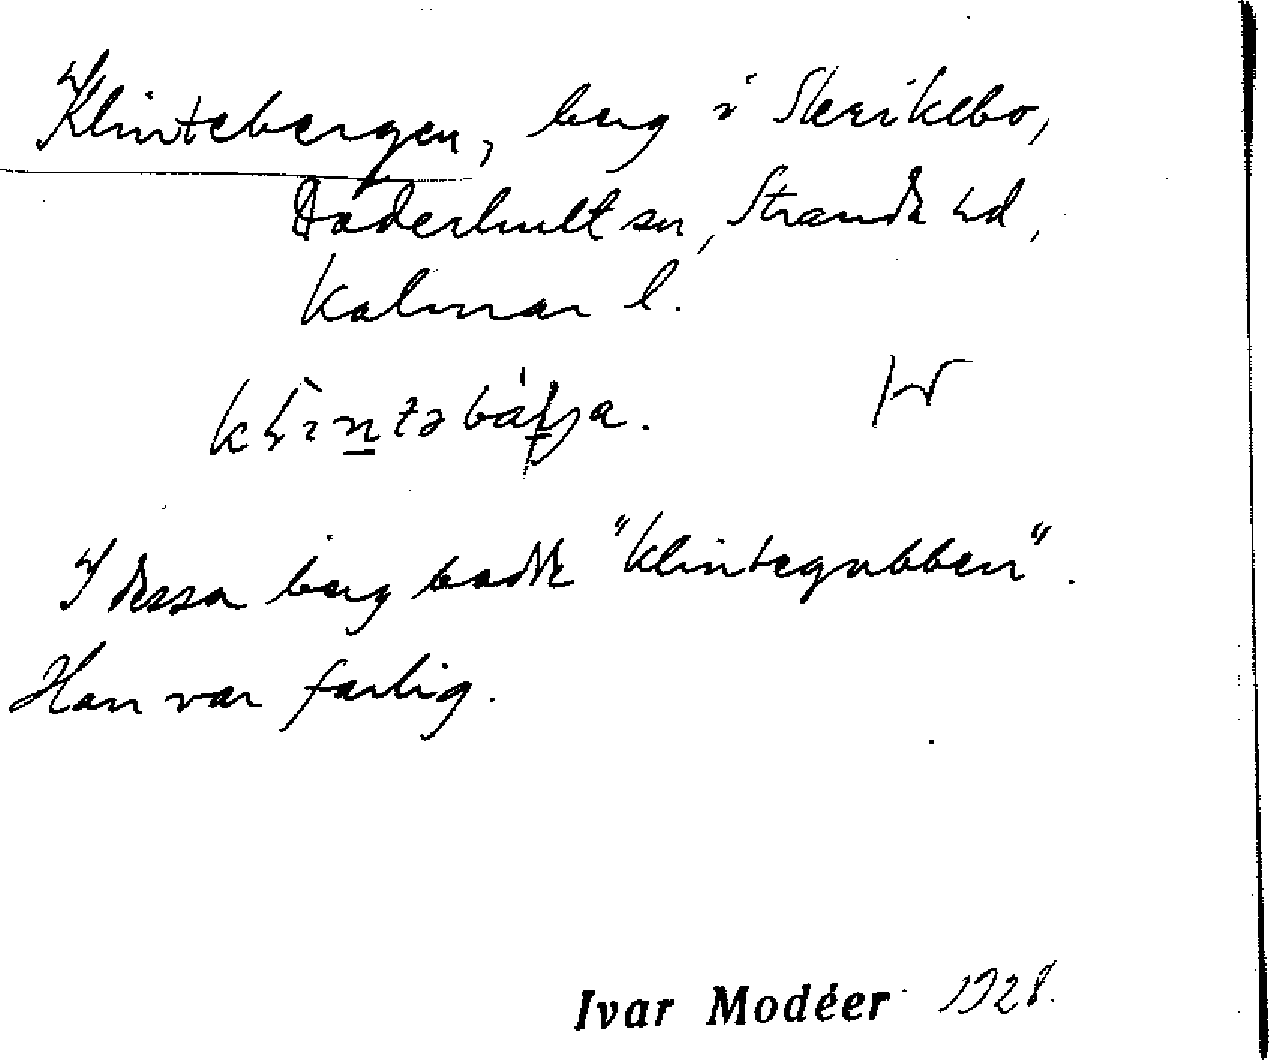 Klintebergen, berg i Skrikebo,
Döderhult sn, Strands hd,
Kalmar l.
I dessa berg bodde "Klintegubben".
Han var farlig.
Ivar Modéer 1928.